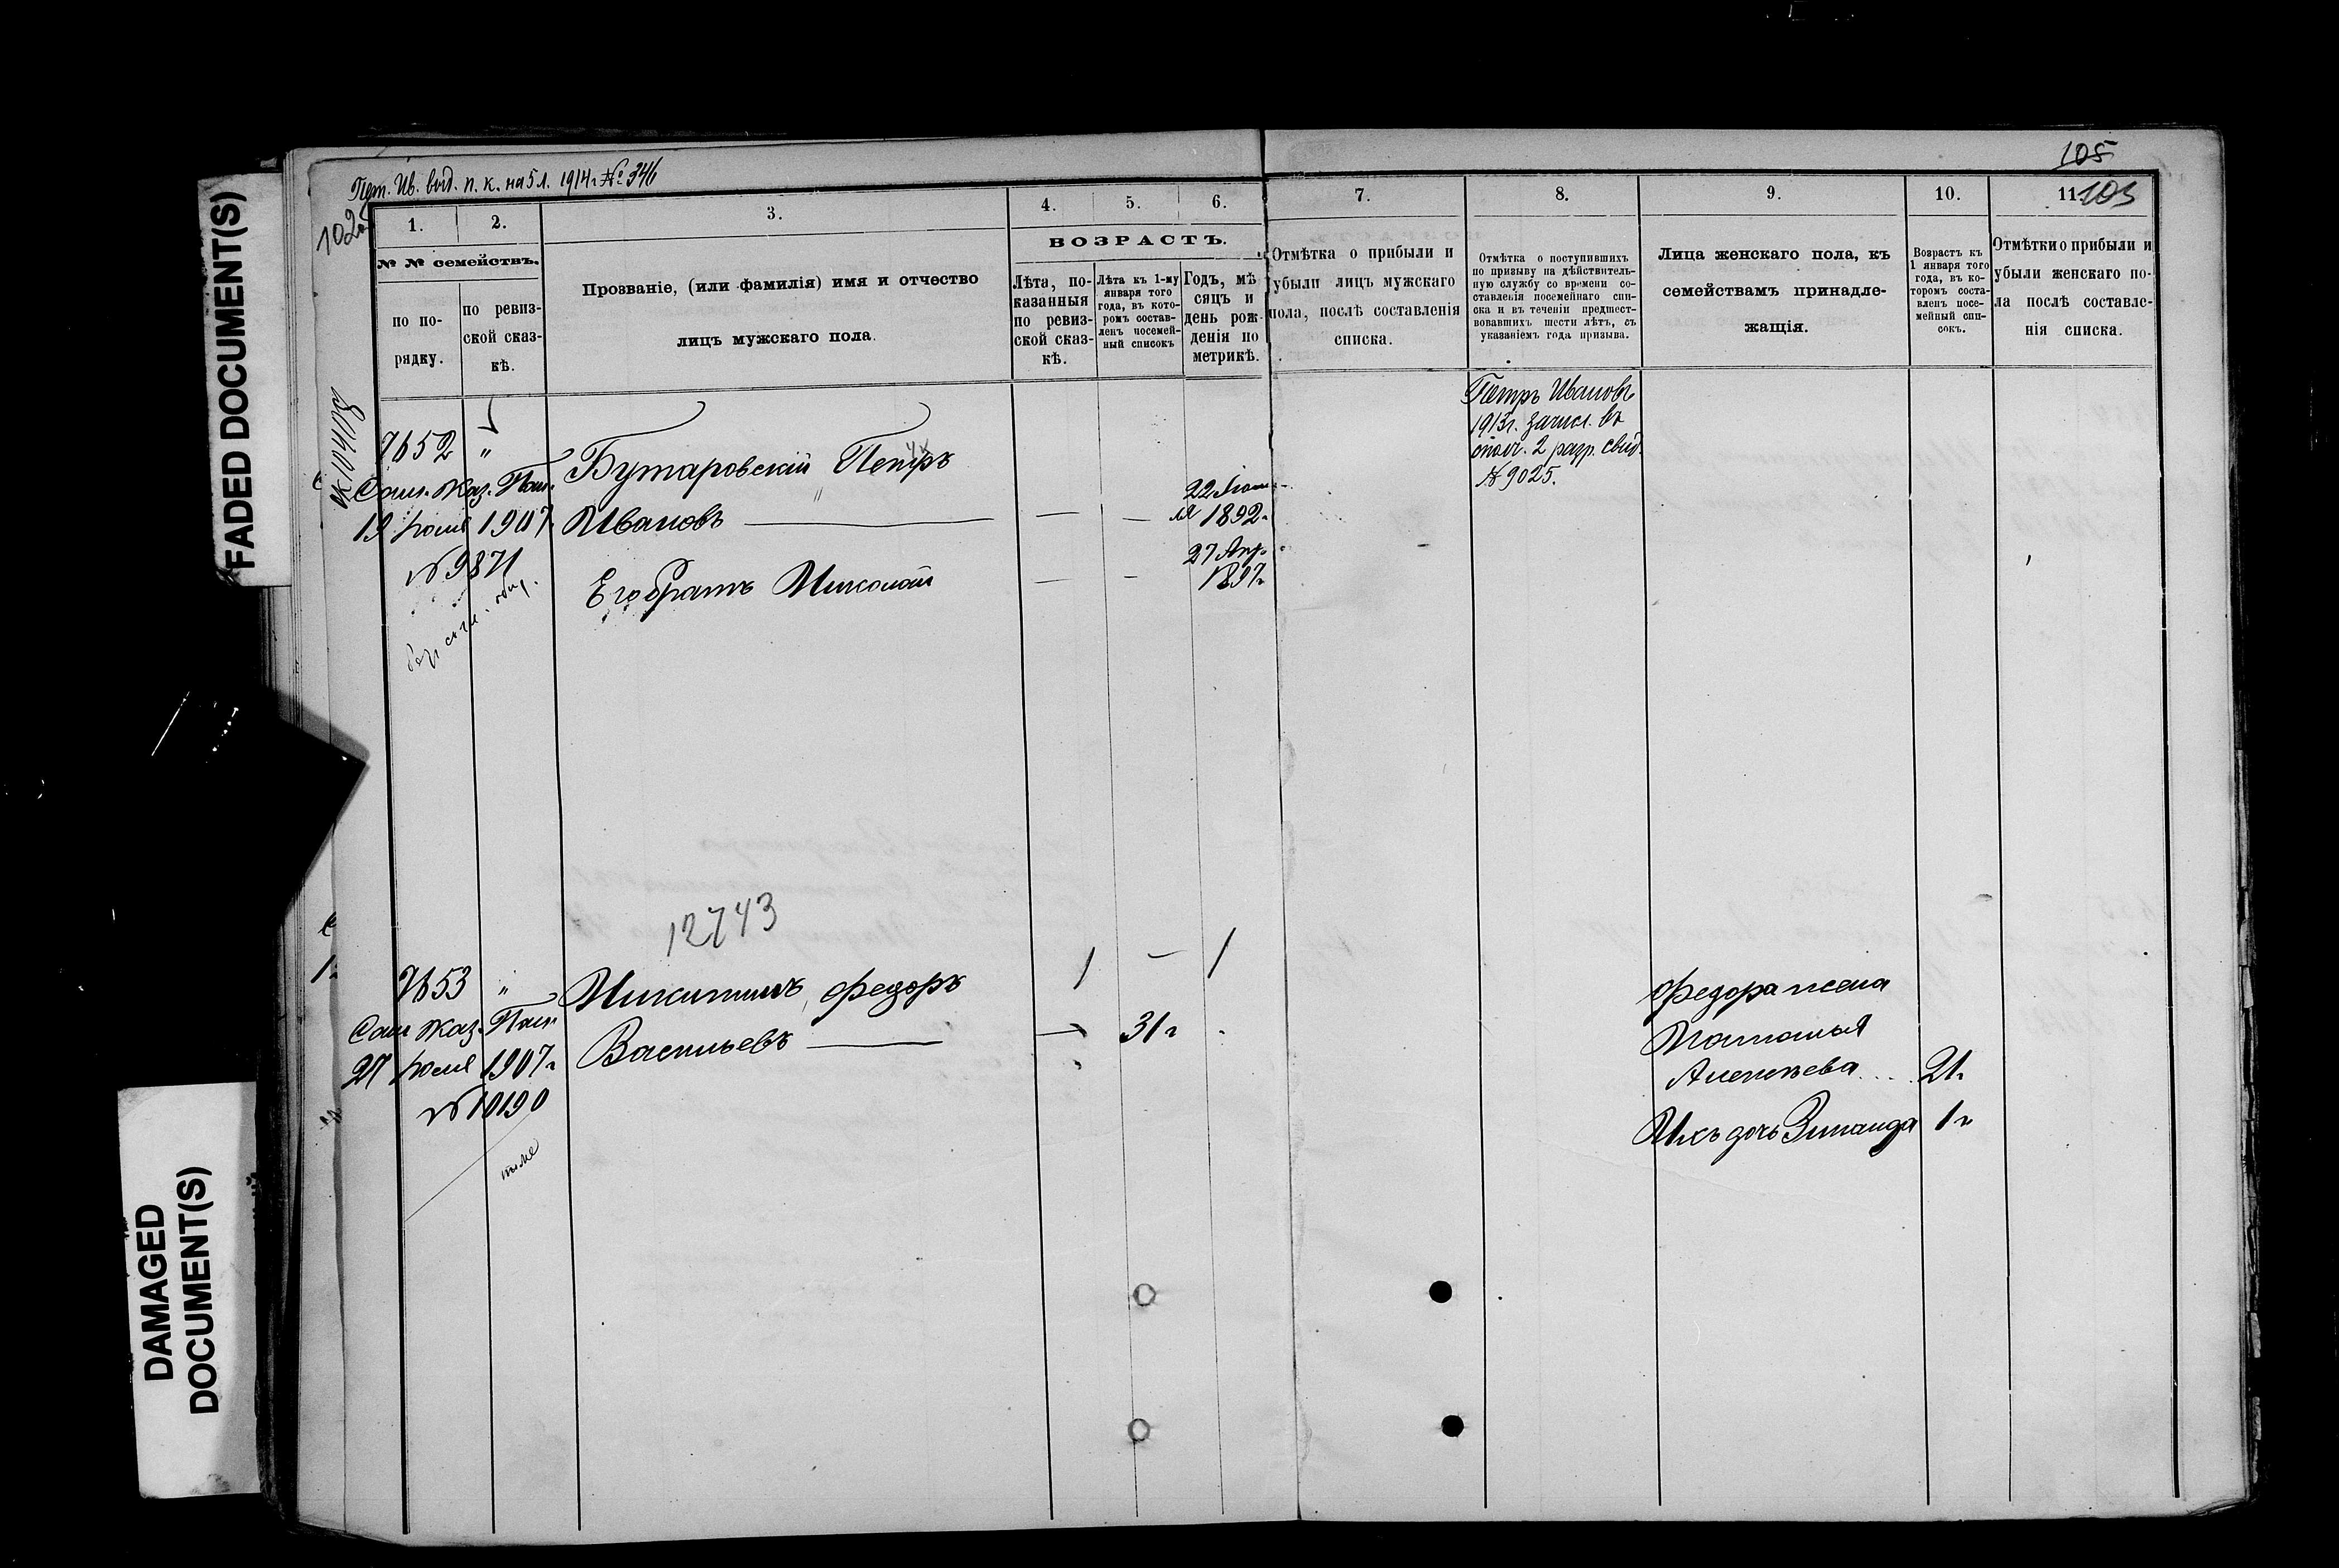 FADED DOCUMENT(S)
DAMAGED
DOCUMENT(S)
Пет. Ив. выд. п. к. на 5 л. 1914 г. № 346
105
103
1. 2. 3. 4. 5. 6. 7. 8. 9. 10. 11.
№ № семействъ.
по по-
рядку.
по ревиз-
ской сказ-
кѣ.
Прозваніе, (или фамилія) имя и отчество
лицъ мужскаго пола.
ВОЗРАСТЪ.
Лѣта, по-
казанныя
по ревиз-
ской сказ-
кѣ.
Лѣта къ 1-му
января того
года, въ кото-
ромъ состав-
ленъ посемей-
ный списокъ
Годъ, мѣ
сяцъ и
день рож-
денія по
метрикѣ.
Отмѣтка о прибыли и
убыли лицъ мужскаго
пола, послѣ составленія
списка.
Отмѣтка о поступившихъ
по призыву на дѣйствитель-
ную службу со времени со-
ставленія посемейнаго спи-
ска и въ теченіи предшест-
вовавшихъ шести лѣтъ, съ
указаніемъ года призыва.
Лица женскаго пола, къ
семействамъ принадле-
жащія.
Возрастъ къ
1 января того
года, въ ко-
торомъ соста-
вленъ посе-
мейный спи-
сокъ.
Отмѣтки о прибыли и
убыли женскаго по-
ла послѣ составле-
нія списка.
7652 "
Сам. Каз. Пал.
19 Іюля 1907
№ 9871
Бутаровскій Петръ
Ивановъ
22 Іюн-
ля 1892 г.
Его братъ Николай
27 Апр.
1897 г.
Петръ Ивановъ
1913 г. зачисл. въ
ополч. 2 разр. свид.
№ 9025.
12743
7653 "
Сам Каз. Пал.
27 Іюля 1907 г.
№ 10190
тоже
Никитинъ Федоръ
Васильевъ
1 — 1
31 г
Федора жена
Наталья
Алексѣева 21.
Ихъ дочь Зинаида 1 г